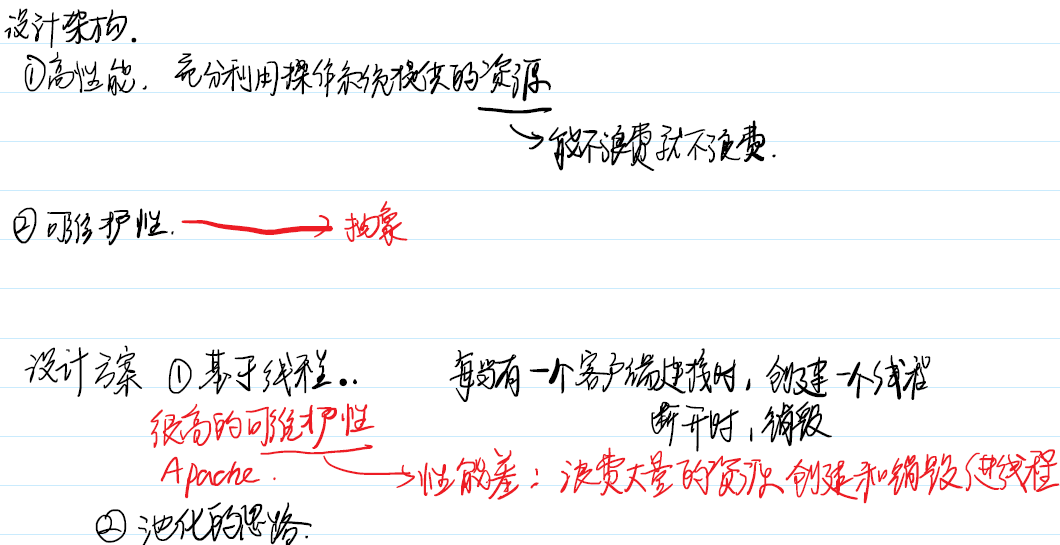 设计架构.
①高性能. 充分利用操作系统提供的资源
能不浪费就不浪费.
②可维护性. 抽象
设计方案 ①基于线程.. 每当有一个客户端连接时, 创建一个线程
很高的可维护性 断开时, 销毁
Apache. 性能差: 浪费大量的资源 创建和销毁进线程
②池化的思路.